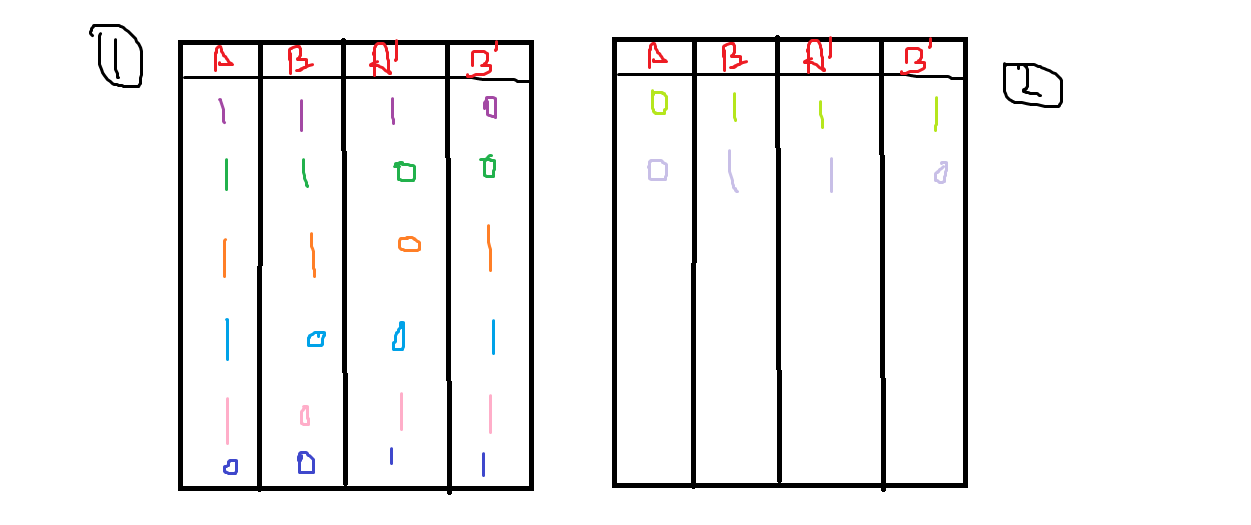 1
A B A' B'
1 1 1 0
1 1 0 0
1 1 0 1
1 0 0 1
1 0 1 1
0 0 1 1
A B A' B'
0 1 1 1
0 1 1 0
2